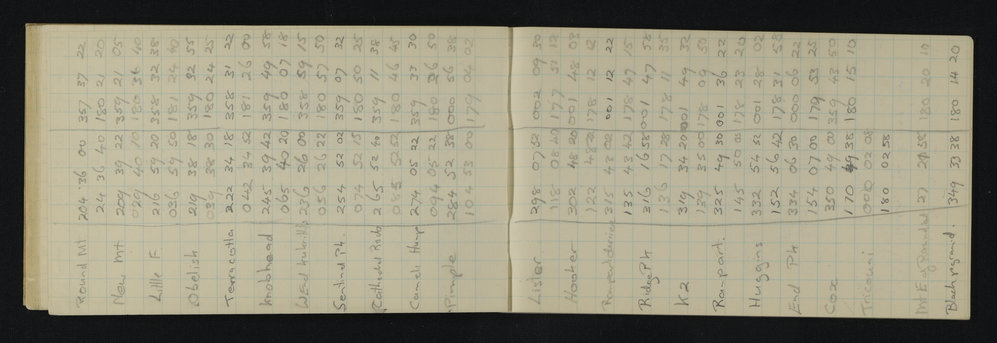 Round Mt 204 36 00 357 37 22
24 36 40 180 21 20
New Mt 209 39 22 359 21 05
029 40 10 180 36 40
Little F. 216 59 20 358 32 38
036 59 50 181 24 40
Obelisk 219 38 18 359 32 55
039 38 30 180 24 25
Terracotta 222 34 18 358 31 22
042 34 52 181 26 00
Knobhead 245 39 42 359 49 58
065 40 20 180 07 18
236 26 00 358 59 15
056 26 22 180 57 50
Sentinel Pk. 254 52 02 359 07 32
074 52 15 180 50 25
Cathedral Rocks 265 52 40 359 11 38
085 52 52 180 46 45
Camels Hump 274 05 22 359 33 30
094 05 22 180 26 50
Pimple 284 52 38 000 56 38
104 53 00 179 04 02
Lister 298 07 52 002 09 30
118 08 40 177 51 12
Hooker 302 48 20 001 48 08
122 48 178 12 12
315 43 02 001 12 22
135 43 42 178 47 15
Ridge Pk 316 16 58 001 47 58
136 17 28 178 11 35
K2 319 34 20 001 49 32
139 35 00 178 09 50
Rampart. 325 49 30 001 36 22
145 50 05 178 23 20
Huggins 332 54 52 001 28 02
152 56 42 178 31 58
End Pk 334 06 30 000 06 22
154 07 00 179 53 25
Cox 350 49 00 359 43 50
170 49 38 180 15 10
Tricouni 000 02 08
180 02 58
180 20 10
Black pyramid. 349 33 38 180 14 20